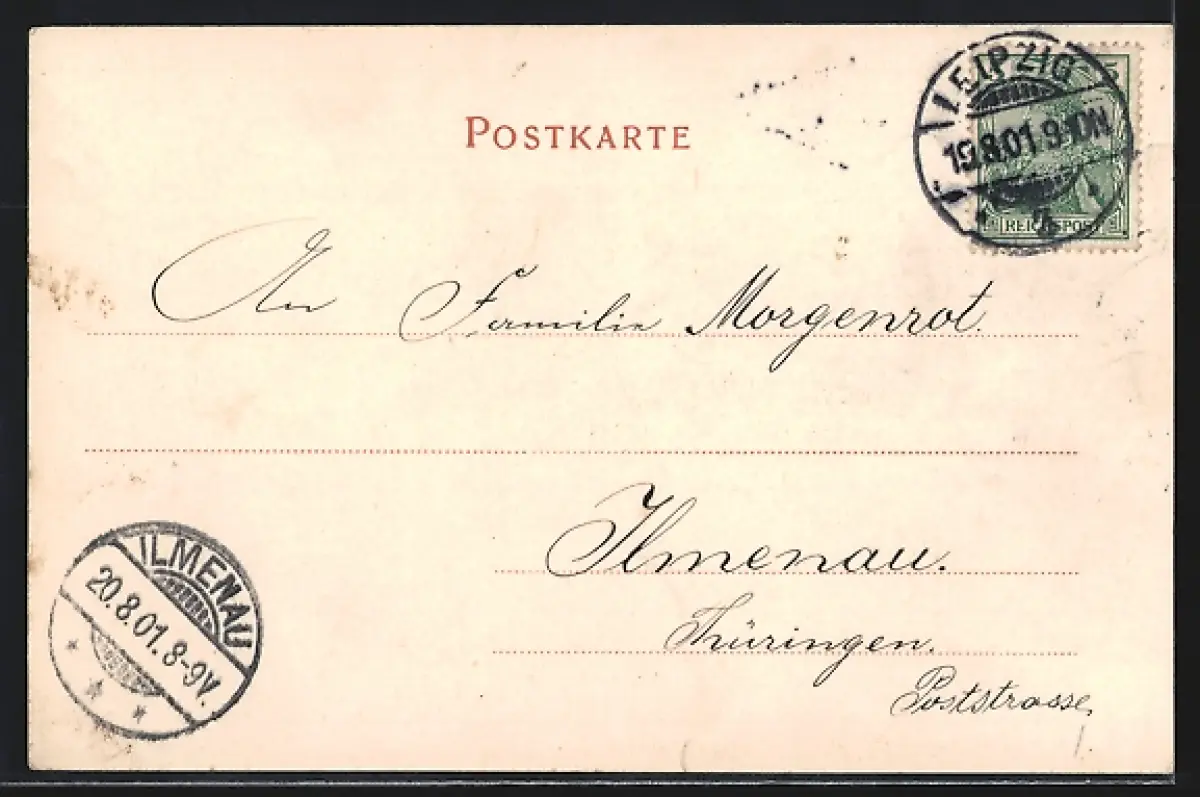 POSTKARTE
LEIPZIG
19.8.01.9-10N
2
5
REICHSPOST
An Familie Morgenrot.
Ilmenau.
Thüringen.
Poststrasse
ILMENAU
20.8.01.8-9V.